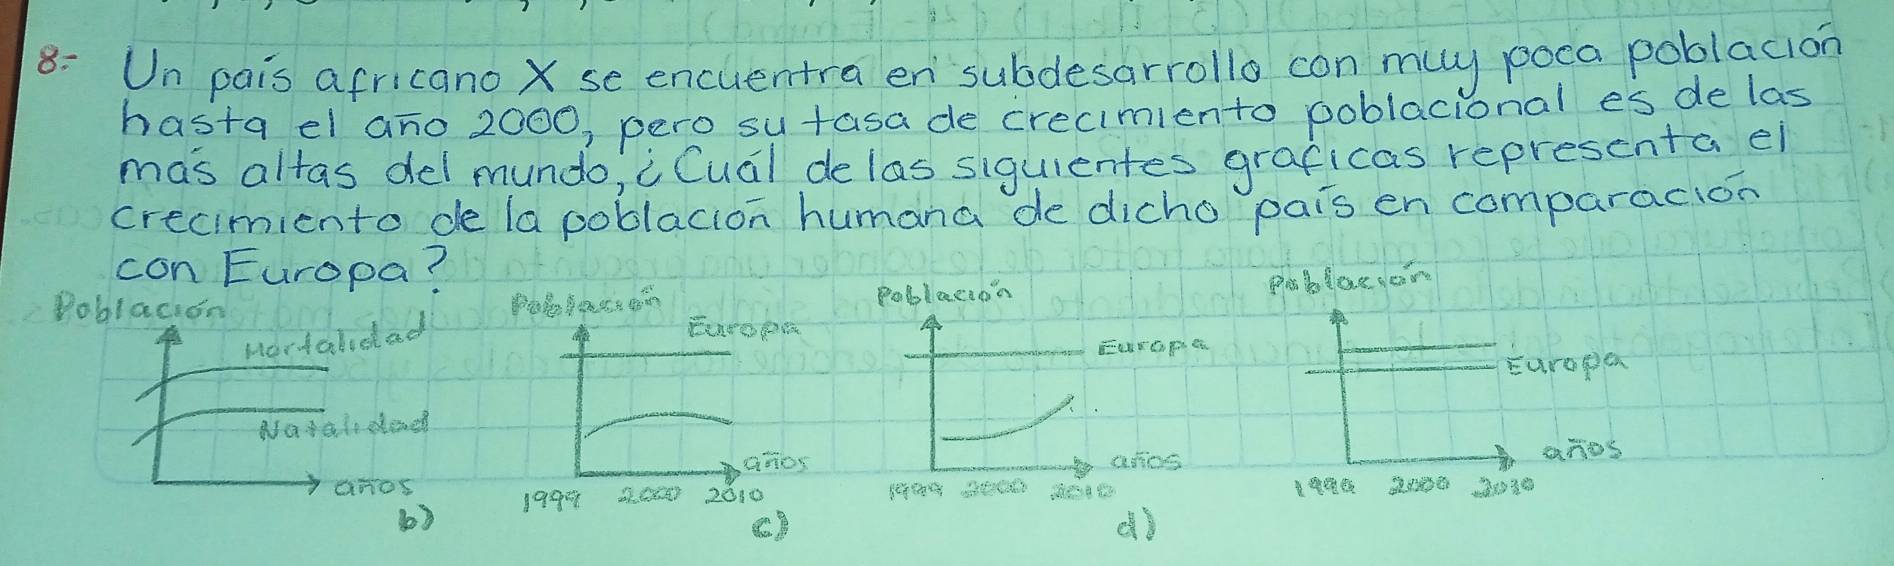 8.- Un país africano X se encuentra en subdesarrollo con muy poca población
hasta el año 2000, pero su tasa de crecimiento poblacional es de las
más altas del mundo, ¿Cuál de las siguientes graficas representa el
crecimiento de la población humana de dicho país en comparación
con Europa?
Población
Mortalidad
Natalidad
años
b)
Población
Europa
años
1999 2000 2010
c)
Población
Europa
años
1999 2000 2010
d)
Población
Europa
años
1999 2000 2030